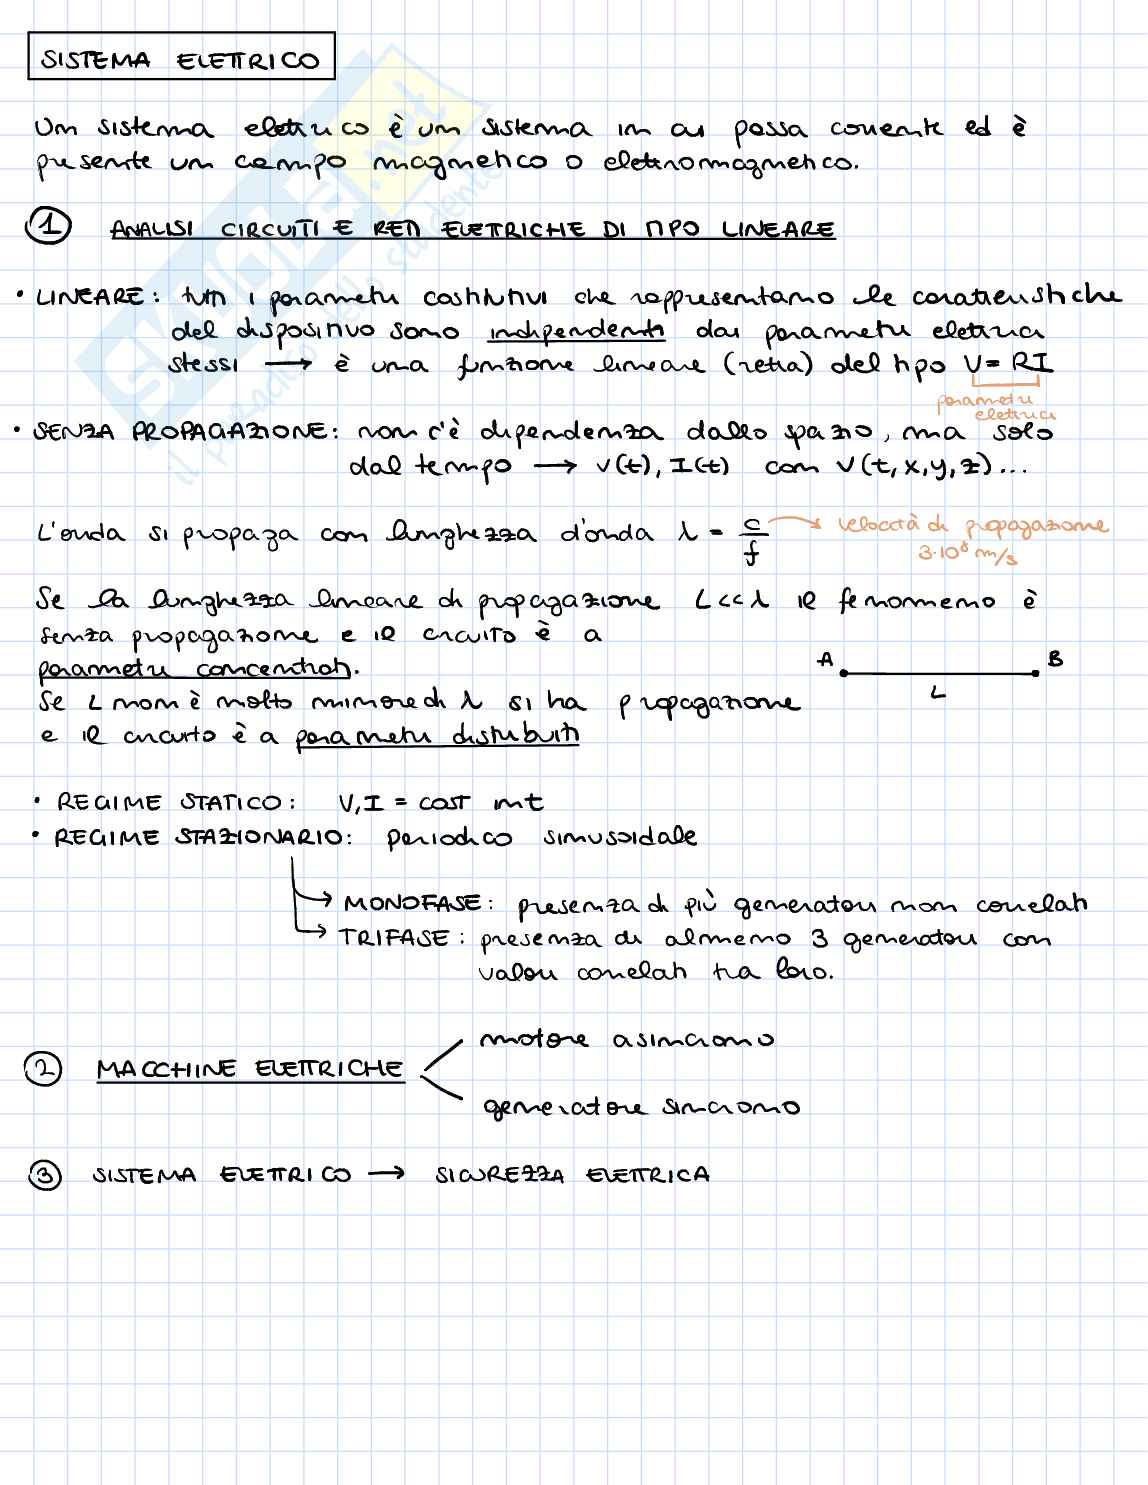 SISTEMA ELETTRICO
Un sistema elettrico è un sistema in cui passa corrente ed è
presente un campo magnetico o elettromagnetico.
1 ANALISI CIRCUITI E RETI ELETTRICHE DI TIPO LINEARE
• LINEARE: tutti i parametri costitutivi che rappresentano le caratteristiche
del dispositivo sono indipendenti dai parametri elettrici
stessi → è una funzione lineare (retta) del tipo V = RI
parametri
elettrici
• SENZA PROPAGAZIONE: non c'è dipendenza dallo spazio, ma solo
dal tempo → v(t), I(t) con V(t,x,y,z)...
L'onda si propaga con lunghezza d'onda λ = c/f → velocità di propagazione
3·10⁸ m/s
Se la lunghezza lineare di propagazione L<<λ il fenonmeno è
senza propagazione e il circuito è a
parametri concentrati.
Se L non è molto minore di λ si ha propagazione
e il circuito è a parametri distribuiti
A B
L
• REGIME STATICO: V,I = cost in t
• REGIME STAZIONARIO: periodico sinusoidale
→ MONOFASE: presenza di più generatori non correlati
→ TRIFASE: presenza di almeno 3 generatori con
valori correlati tra loro.
motore asincrono
2 MACCHINE ELETTRICHE
generatore sincrono
3 SISTEMA ELETTRICO → SICUREZZA ELETTRICA
skuola.net
il paradiso dello studente